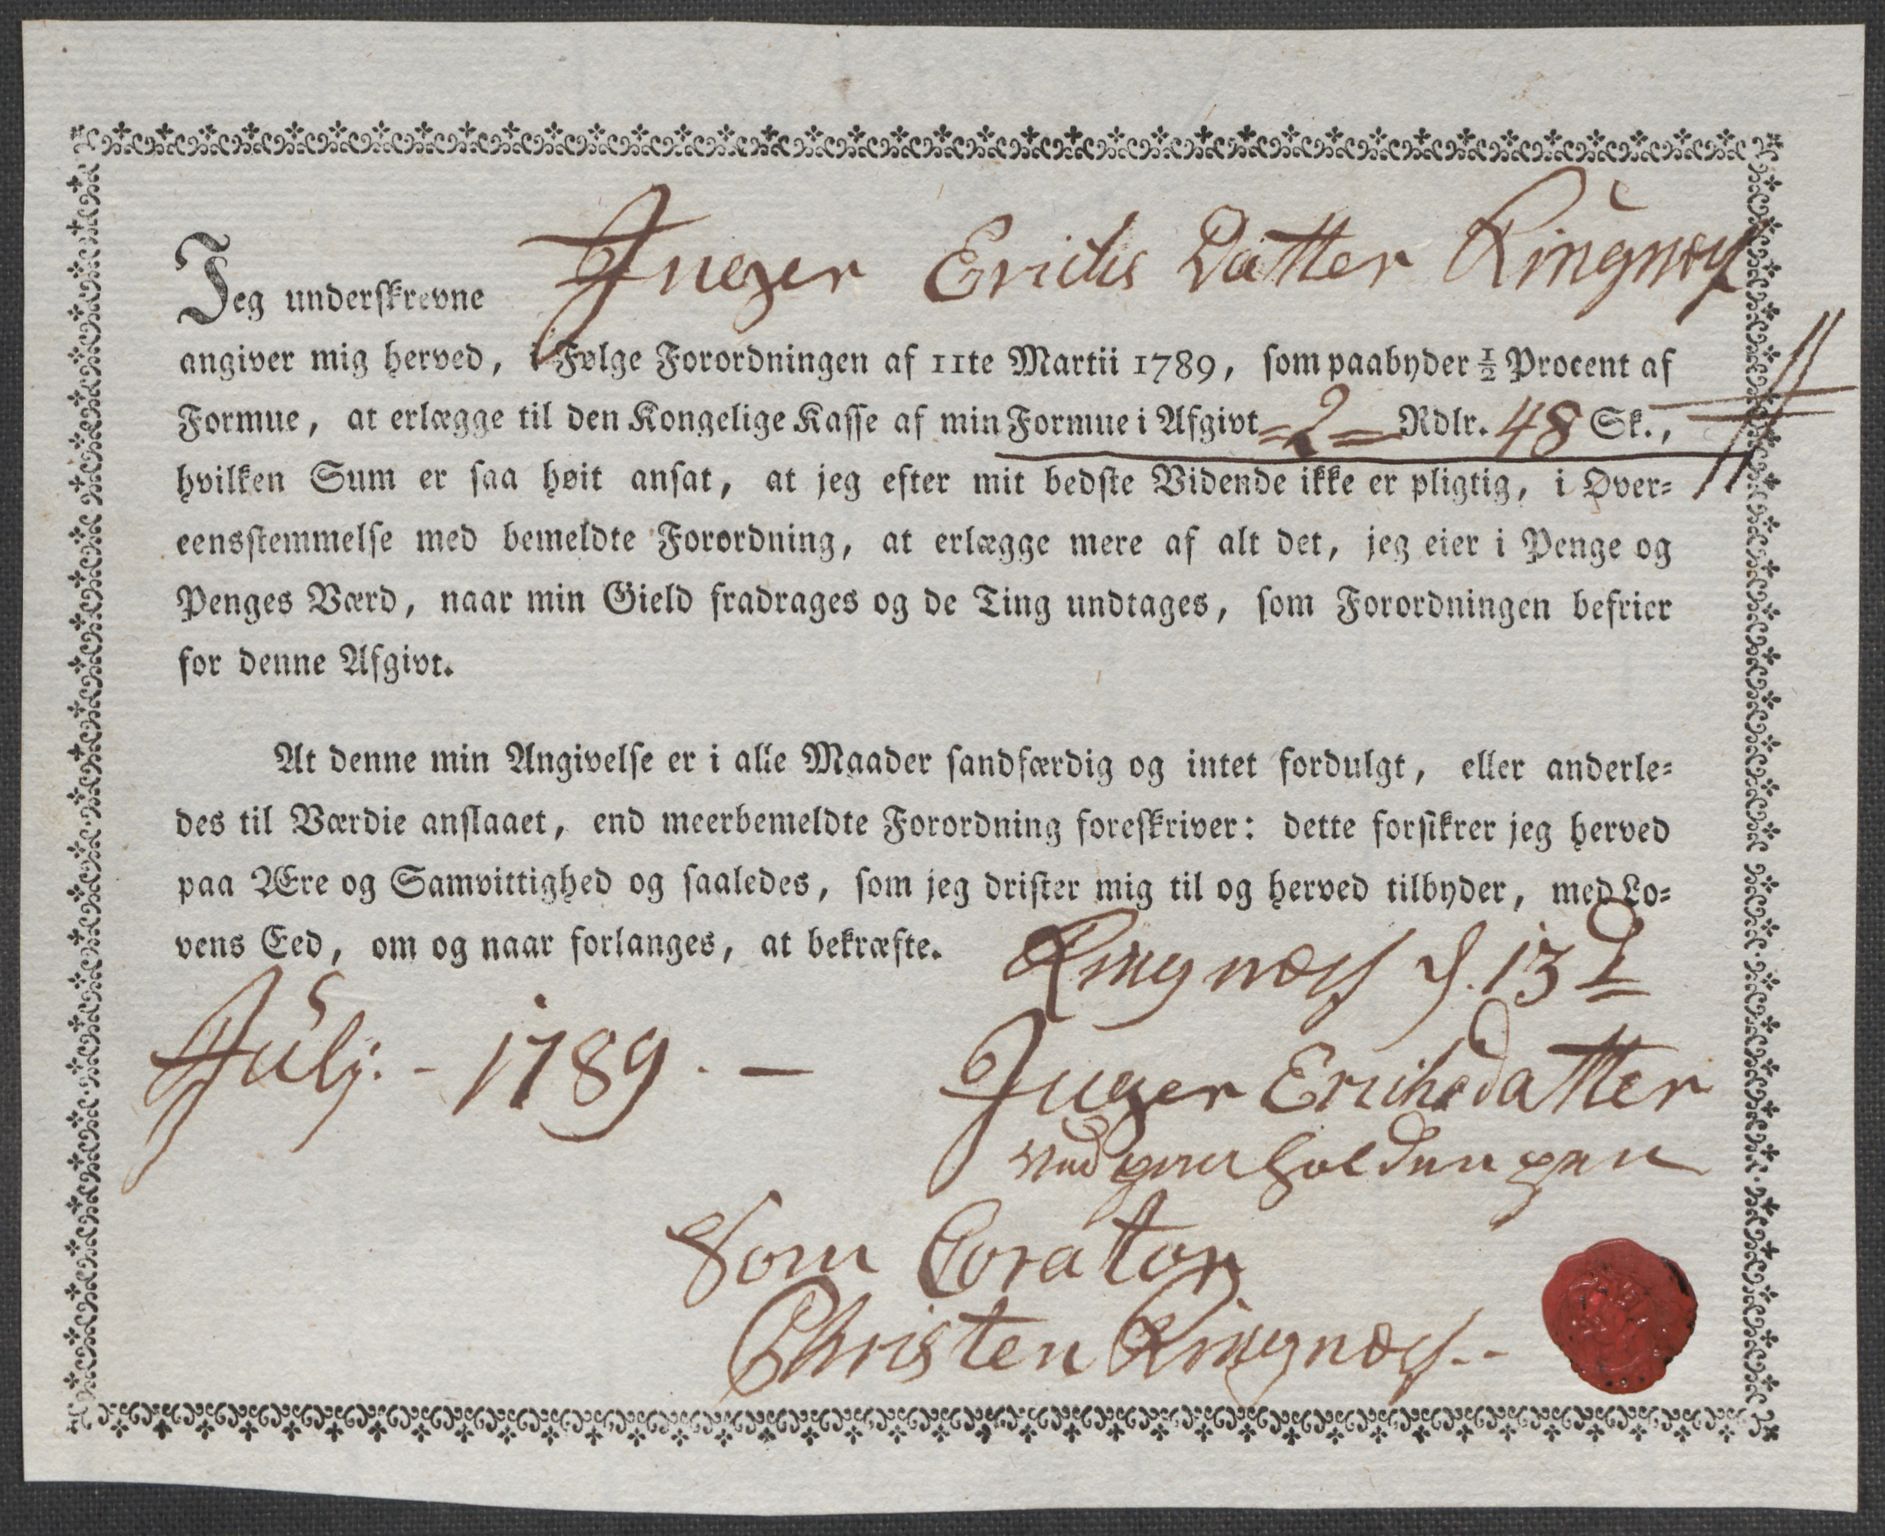 Jeg underskrevne Inger Erichs Datter Ringnæss
angiver mig herved, i Følge Forordningen af 11te Martii 1789, som paabyder ½ Procent af
Formue, at erlægge til den Kongelige Kasse af min Formue i Afgivt =2= Rdlr. 48 Sk.,
hvilken Sum er saa høit ansat, at jeg efter mit bedste Vidende ikke er pligtig, i Over=
eensstemmelse med bemeldte Forordning, at erlægge mere af alt det, jeg eier i Penge og
Penges Værd, naar min Gield fradrages og de Ting undtages, som Forordningen befrier
for denne Afgivt.
At denne min Angivelse er i alle Maader sandfærdig og intet fordulgt, eller anderle=
des til Værdie anslaaet, end meerbemeldte Forordning foreskriver: dette forsikrer jeg herved
paa Ære og Samvittighed og saaledes, som jeg drister mig til og herved tilbyder, med Lo=
vens Eed, om og naar forlanges, at bekræfte. Ringnæss d. 13d
Julj: - 1789. —
Inger Erichsdatter
med
Som Corator
Christen Ringnæss.-